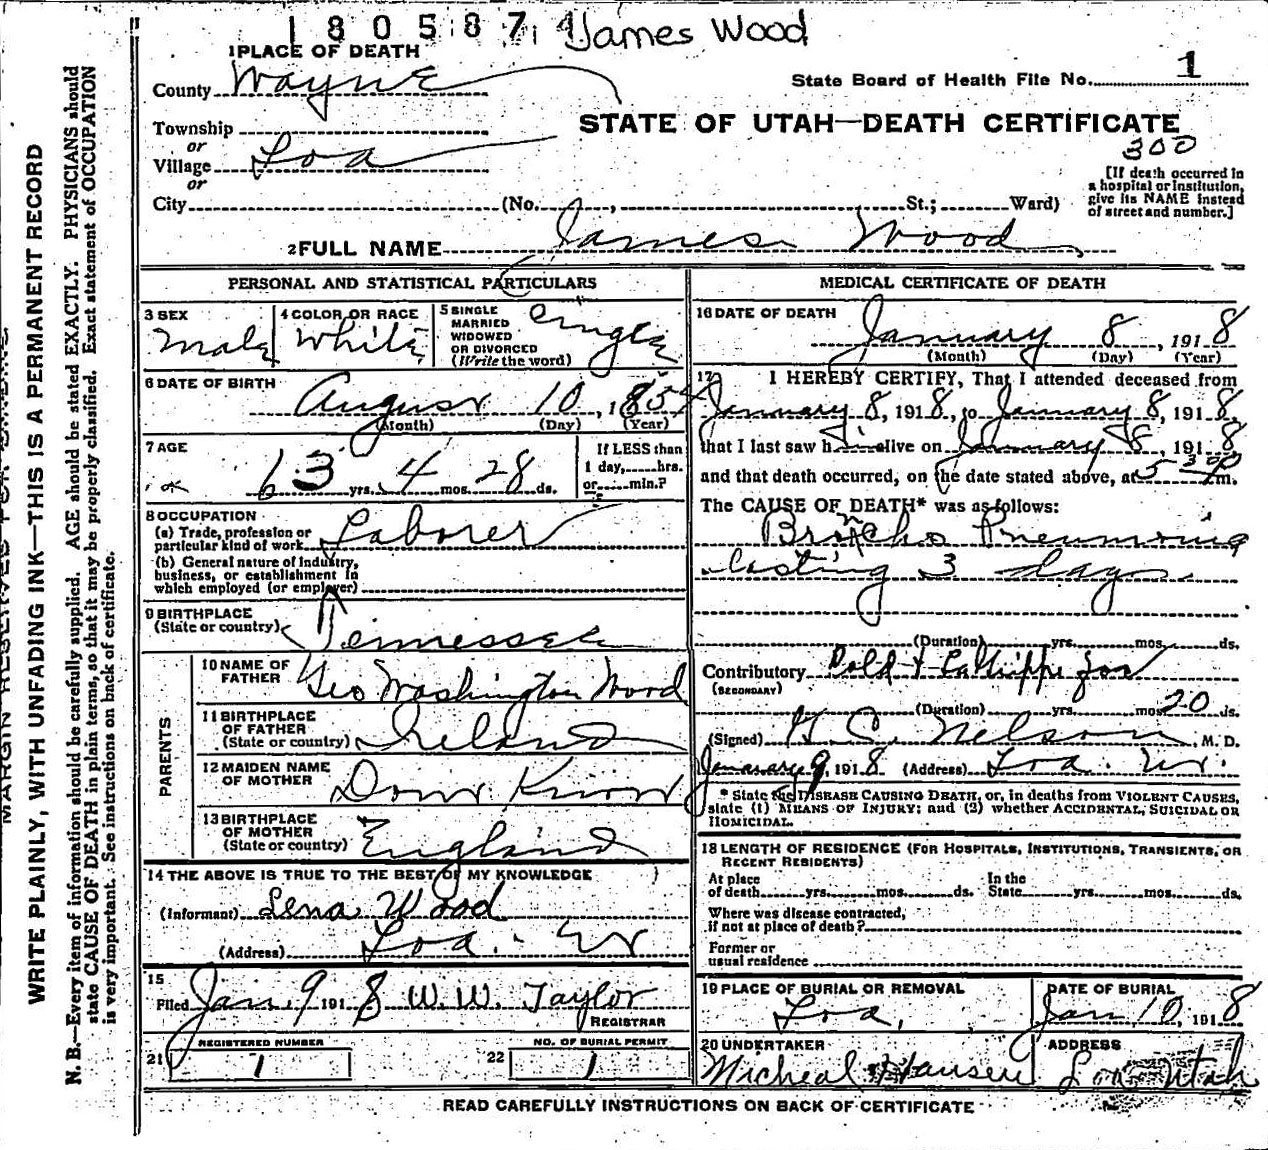 180587 James Wood
1 PLACE OF DEATH
State Board of Health File No. 1
County Wayne
STATE OF UTAH—DEATH CERTIFICATE
Township
or
300
Village Loa
or
[If death occurred in
a hospital or institution,
give its NAME instead
of street and number.]
City (No. , St.; Ward)
2 FULL NAME James Wood
PERSONAL AND STATISTICAL PARTICULARS
3 SEX
Male
4 COLOR OR RACE
White
5 SINGLE
MARRIED
WIDOWED
OR DIVORCED
(Write the word)
Single
6 DATE OF BIRTH
August 10, 1854
(Month) (Day) (Year)
7 AGE
63 yrs. 4 mos. 28 ds.
If LESS than
1 day, hrs.
or min.?
8 OCCUPATION
(a) Trade, profession or
particular kind of work Laborer
(b) General nature of Industry,
business, or establishment in
which employed (or employer)
9 BIRTHPLACE
(State or country) Tennessee
PARENTS
10 NAME OF
FATHER Geo Washington Wood
11 BIRTHPLACE
OF FATHER
(State or country) Ireland
12 MAIDEN NAME
OF MOTHER Dont Know
13 BIRTHPLACE
OF MOTHER
(State or country) England
14 THE ABOVE IS TRUE TO THE BEST OF MY KNOWLEDGE
(Informant) Lena Wood
(Address) Loa. Ut
15
Filed Jan. 9 1918 W. W. Taylor
REGISTRAR
REGISTERED NUMBER
21 1
NO. OF BURIAL PERMIT
22 1
MEDICAL CERTIFICATE OF DEATH
16 DATE OF DEATH
January 8, 1918
(Month) (Day) (Year)
17 I HEREBY CERTIFY, That I attended deceased from
January 8, 1918, to January 8, 1918,
that I last saw him alive on January 8, 1918
and that death occurred, on the date stated above, at 5 30 Pm.
The CAUSE OF DEATH* was as follows:
Broncho Pneumonia
lasting 3 days.
(Duration) yrs. mos. ds.
Contributory Cold & LaGrippe for
(SECONDARY)
(Duration) yrs. mos. 20 ds.
(Signed) H. C. Nelson M. D.
January 9, 1918 (Address) Loa. Ut.
* State the DISEASE CAUSING DEATH, or, in deaths from VIOLENT CAUSES,
state (1) MEANS OF INJURY; and (2) whether ACCIDENTAL, SUICIDAL OR
HOMICIDAL.
18 LENGTH OF RESIDENCE (FOR HOSPITALS, INSTITUTIONS, TRANSIENTS, OR
RECENT RESIDENTS)
At place
of death yrs. mos. ds.
In the
State yrs. mos. ds.
Where was disease contracted,
if not at place of death?
Former or
usual residence
19 PLACE OF BURIAL OR REMOVAL
Loa,
DATE OF BURIAL
Jan 10, 1918
20 UNDERTAKER
Micheal Hansen
ADDRESS
Loa Utah
READ CAREFULLY INSTRUCTIONS ON BACK OF CERTIFICATE
MARGIN RESERVED FOR BINDING
WRITE PLAINLY, WITH UNFADING INK—THIS IS A PERMANENT RECORD
N. B.—Every item of information should be carefully supplied. AGE should be stated EXACTLY. PHYSICIANS should
state CAUSE OF DEATH in plain terms, so that it may be properly classified. Exact statement of OCCUPATION
is very important. See instructions on back of certificate.